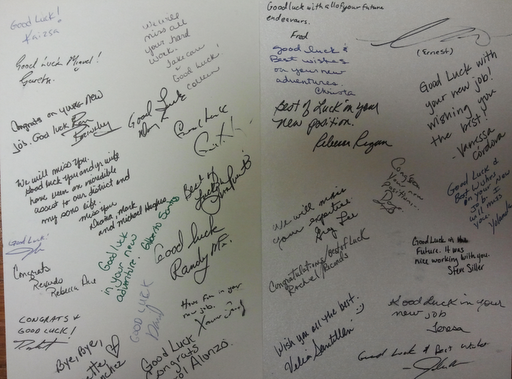 Good Luck!
Good Luck Miguel!
we will
miss all
your hard
work.
Take care
Good Luck!
Congrats on your new
job. Good luck
Good Luck
Good Luck
We will miss you.
Good luck you and your wife
have been an incredible
asset to our district and
my sons life.
miss you
Mark
and Michael
Best of
Luck
Good Luck
in your new
adventure.
Good luck
Randy
Good Luck
Congrats
Ricardo
Rebecca
CONGRATS &
GOOD LUCK!
Good luck
David
Have fun in your
new job.
Bye, Bye,
Good Luck
Congrats
Alonzo.
Good luck with all of your future
endeavors.
Fred
(Ernest)
good luck &
Best wishes
on your new
adventures
Best of Luck in your
new position.
Rebecca Ragan
Good Luck with
your new job!
wishing you
the best!
- Vanessa
Cordova
Congrats
Good Luck &
Best Wishes
on your new
job. I
will miss
you
We will miss
your expertise
Greg Lee
Congratulations/out of luck
Rachel
Good Luck in the
Future. It was
nice working with you.
Steve Siller
Wish you all the best.
Good Luck in your
new job
Teresa
Good Luck & Best Wishes